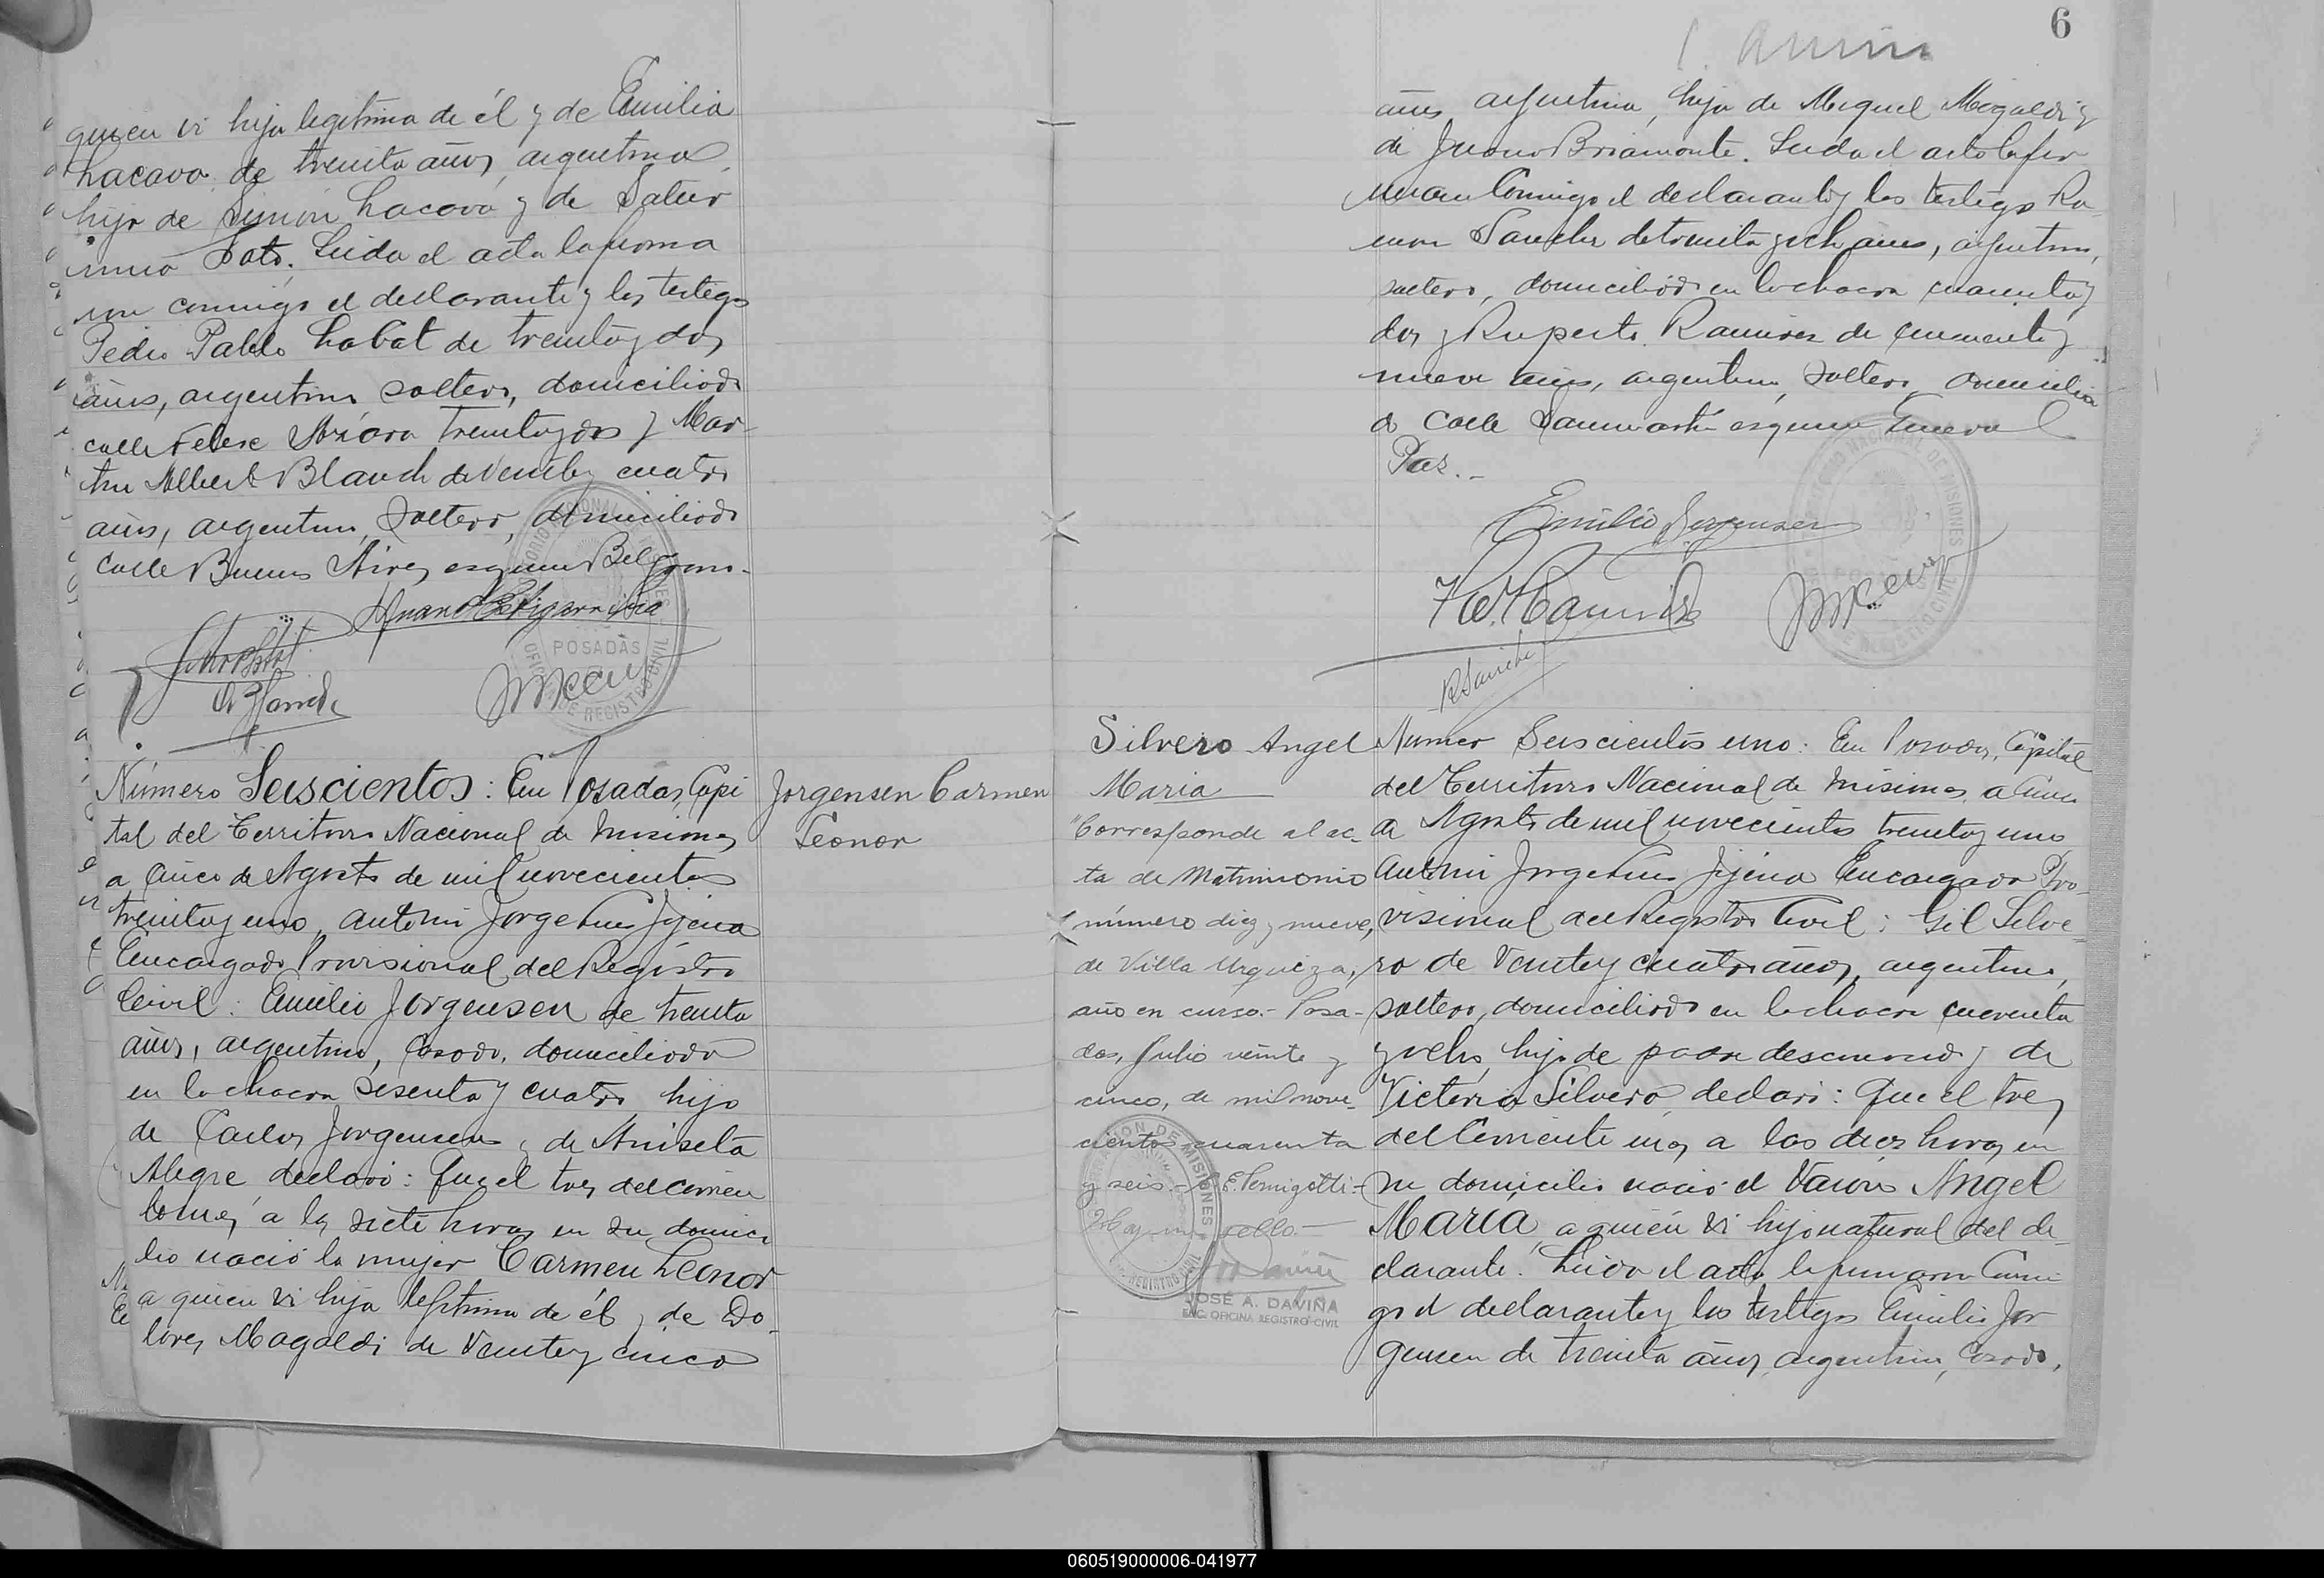 quien vi hija legitima de él y de Emilia
Lacava de treinta años, argentina,
hija de Simón Lacava y de Satur
nina Soto. Leida el acta la firma
ron conmigo el declarante y los testigos
Pedro Pablo Labat de treinta y dos
años, argentino soltero, domiciliado
calle Felix Azara treinta y dos y Mar
tin Albert Blanch de veinte y cuatro
años, argentino, soltero, domiciliado
calle Buenos Aires esquina Belgrano.
POSADAS
Número Seiscientos: En Posadas, Capi
tal del Territorio Nacional de Misiones
a cinco de Agosto de mil novecientos
treinta y uno, Antonio Jorge Luis Jijena
Encargado Provisional del Registro
Civil: Emilio Jorgensen de treinta
años, argentino, casado, domiciliado
en la chacra sesenta y cuatro, hijo
de Carlos Jorgensen y de Aniseta
Alegre declaró: Que el tres del corrien
te mes, a las siete horas en su domici
lio nació la mujer Carmen Leonor
a quien vi hija legitima de él y de Do-
lores Magaldi de veinte y cinco
Jorgensen Carmen
Leonor
6
años, argentina, hija de Miguel Magaldi y
de Juana Briamonte. Leida el acta la fir
maron conmigo el declarante y los testigos Ra-
mon Sanchez de treinta y och años, argentino,
soltero, domiciliado en la chacra cuarenta y
dos y Ruperto Ramirez de cuarenta y
nueve años, argentino, soltero, domicilia
do calle San Martin esquina General
Paz.-
Emilio Jorgensen
R Sanchez
Silvero Angel
Maria
"Corresponde al ac-
ta de Matrimonio
número diez y nueve,
de Villa Urquiza,
año en curso.- Posa-
das, Julio veinte y
cinco, de mil nove-
cientos cuarenta
y seis.-
Hay un sello.-
JOSÉ A. DAVIÑA
ENC. OFICINA REGISTRO CIVIL
Numero Seiscientos uno: En Posadas, Capital
del Territorio Nacional de Misiones a cinco
de Agosto de mil novecientos treinta y uno
Antonio Jorge Luis Jijena Encargado Pro-
visional del Registro Civil: Gil Silve-
ro de veinte y cuatro años, argentino,
soltero, domiciliado en la chacra cuarenta
y ocho, hijo de padre desconocido y de
Victoria Silvero, declaró: Que el tres
del corriente mes a las diez horas en
su domicilio nació el varón Angel
María, a quien vi hijo natural del de-
clarante. Leida el acta la firmaron conmi
go el declarante y los testigos Emilio Jor
gensen de treinta años, argentino, casado,
060519000006-041977